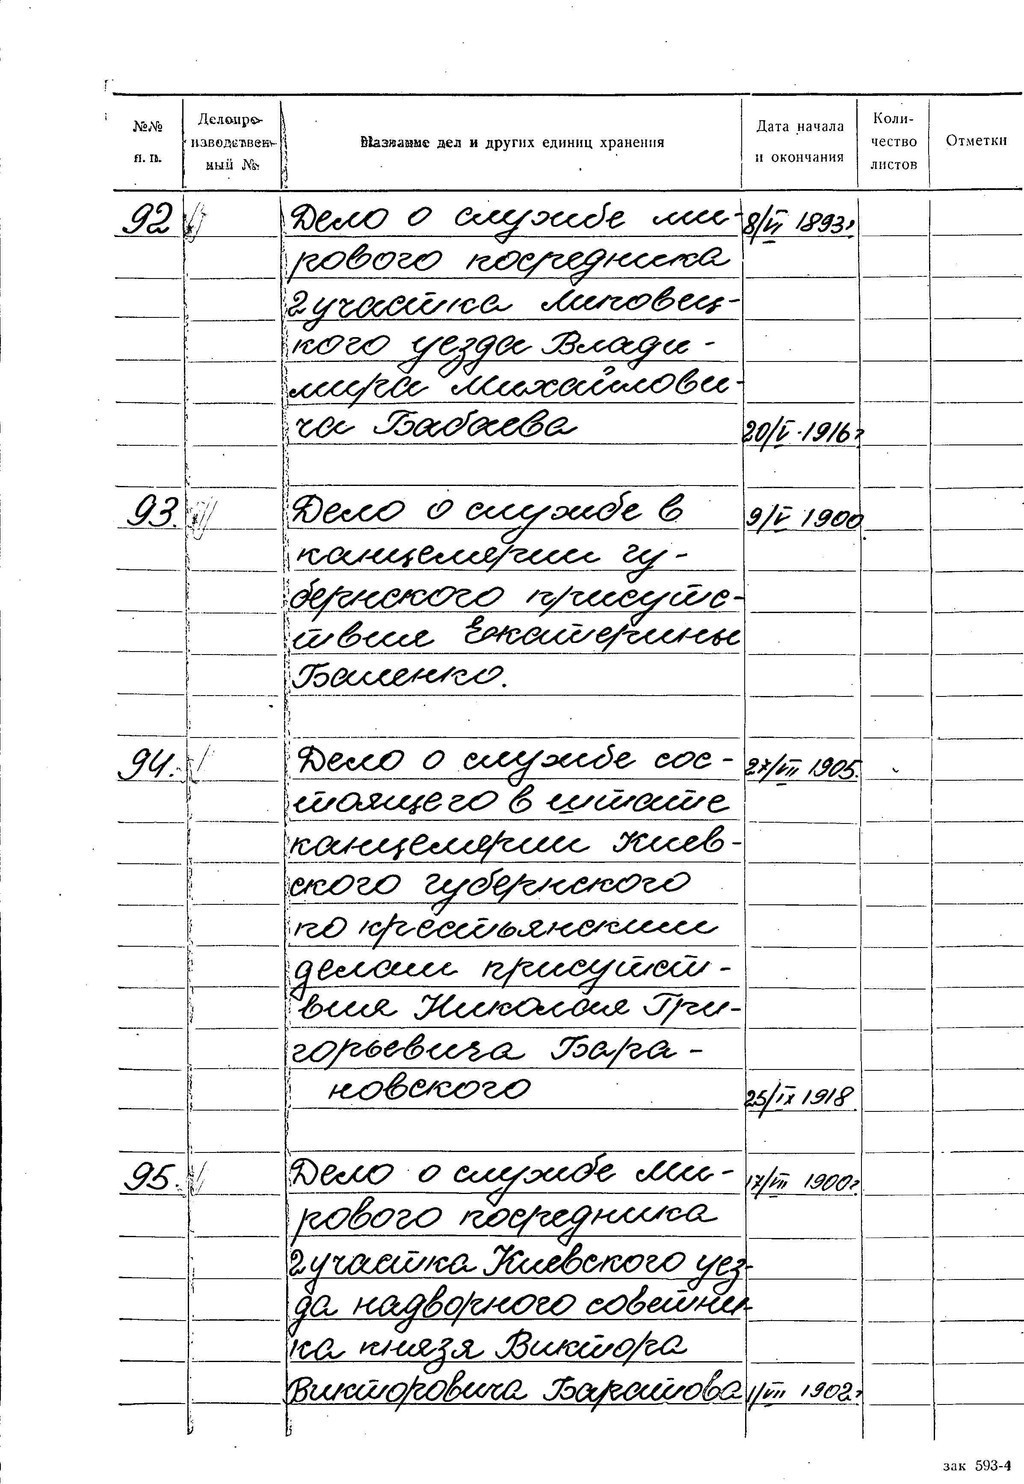 №№ п. п.
Делопроизводственный №
Название дел и других единиц хранения
Дата начала и окончания
Количество листов
Отметки
92 Дело о службе ми- 8/VI 1893г
рового посредника
2 участка Липовец-
кого уезда Влади-
мира Михайлови-
ча Бабаева 20/V-1916г
93. Дело о службе в 9/V 1900
канцелярии гу-
бернского присутс-
твия Екатерины
Баленко.
94. Дело о службе сос- 27/VIII 1905.
тоящего в штате
канцелярии Киев-
ского губернского
по крестьянским
делам присутст-
вия Николая Гри-
горьевича Бара-
новского 25/IX 1918
95. Дело о службе ми- 17/VIII 1900г
рового посредника
2 участка Киевского уез-
да надворного советни-
ка князя Виктора
Викторовича Баратова 1/VII 1902г
зак 593-4